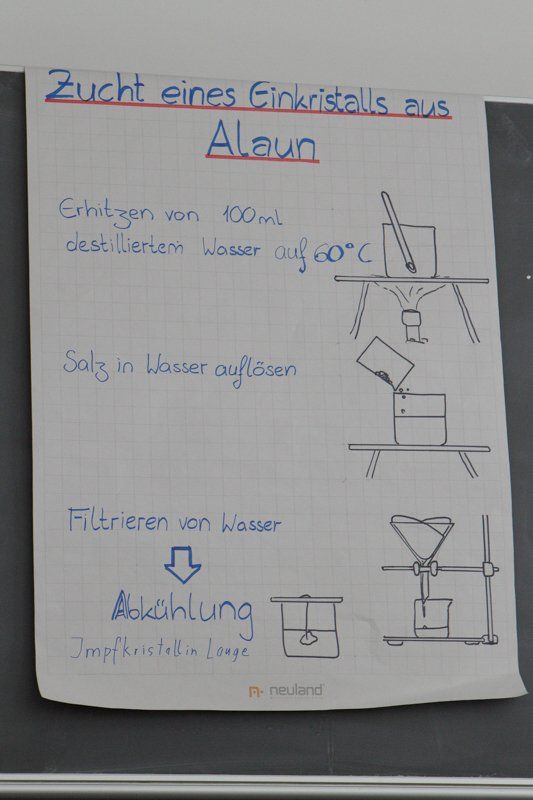 Zucht eines Einkristalls aus
Alaun
Erhitzen von 100ml
destilliertem Wasser auf 60°C
Salz in Wasser auflösen
Filtrieren von Wasser
Abkühlung
Impfkristall in Lauge
neuland